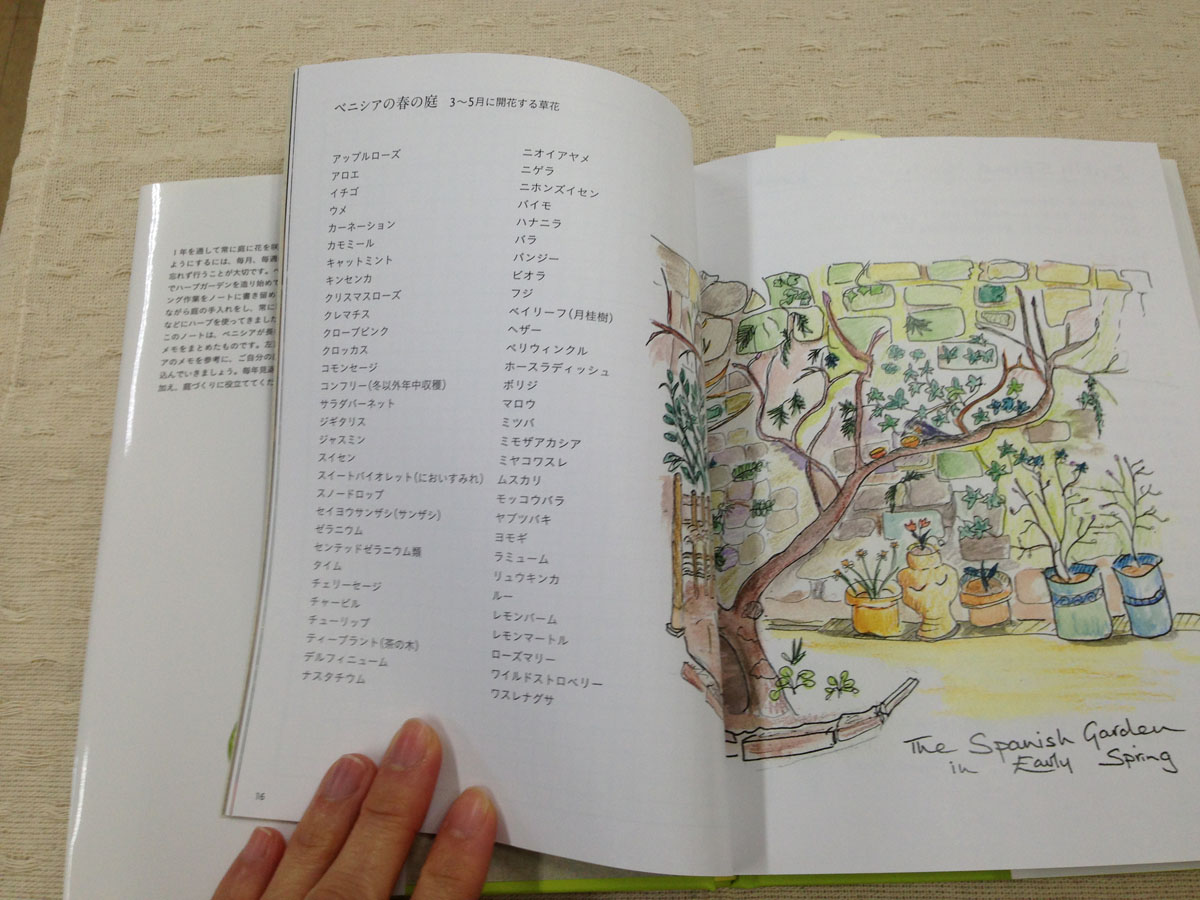 1年を通して常に庭に花を咲
ようにするには、毎月、毎週
忘れず行うことが大切です。
でハーブガーデンを造り始めて
ング作業をノートに書き留め
ながら庭の手入れをし、常に
などにハーブを使ってきました
このノートは、ベニシアが長
メモをまとめたものです。左
アのメモを参考に、ご自分の
込んでいきましょう。毎年見返
加え、庭づくりに役立ててくだ
ベニシアの春の庭 3〜5月に開花する草花
アップルローズ
アロエ
イチゴ
ウメ
カーネーション
カモミール
キャットミント
キンセンカ
クリスマスローズ
クレマチス
クローブピンク
クロッカス
コモンセージ
コンフリー(冬以外年中収穫)
サラダバーネット
ジギタリス
ジャスミン
スイセン
スイートバイオレット(においすみれ)
スノードロップ
セイヨウサンザシ(サンザシ)
ゼラニウム
センテッドゼラニウム類
タイム
チェリーセージ
チャービル
チューリップ
ティープラント(茶の木)
デルフィニューム
ナスタチウム
ニオイアヤメ
ニゲラ
ニホンズイセン
バイモ
ハナニラ
バラ
パンジー
ビオラ
フジ
ベイリーフ(月桂樹)
ヘザー
ペリウィンクル
ホースラディッシュ
ボリジ
マロウ
ミツバ
ミモザアカシア
ミヤコワスレ
ムスカリ
モッコウバラ
ヤブツバキ
ヨモギ
ラミューム
リュウキンカ
ルー
レモンバーム
レモンマートル
ローズマリー
ワイルドストロベリー
ワスレナグサ
16
The Spanish Garden
in Early Spring